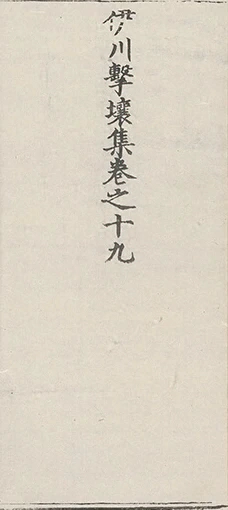 伊川擊壤集卷之十九